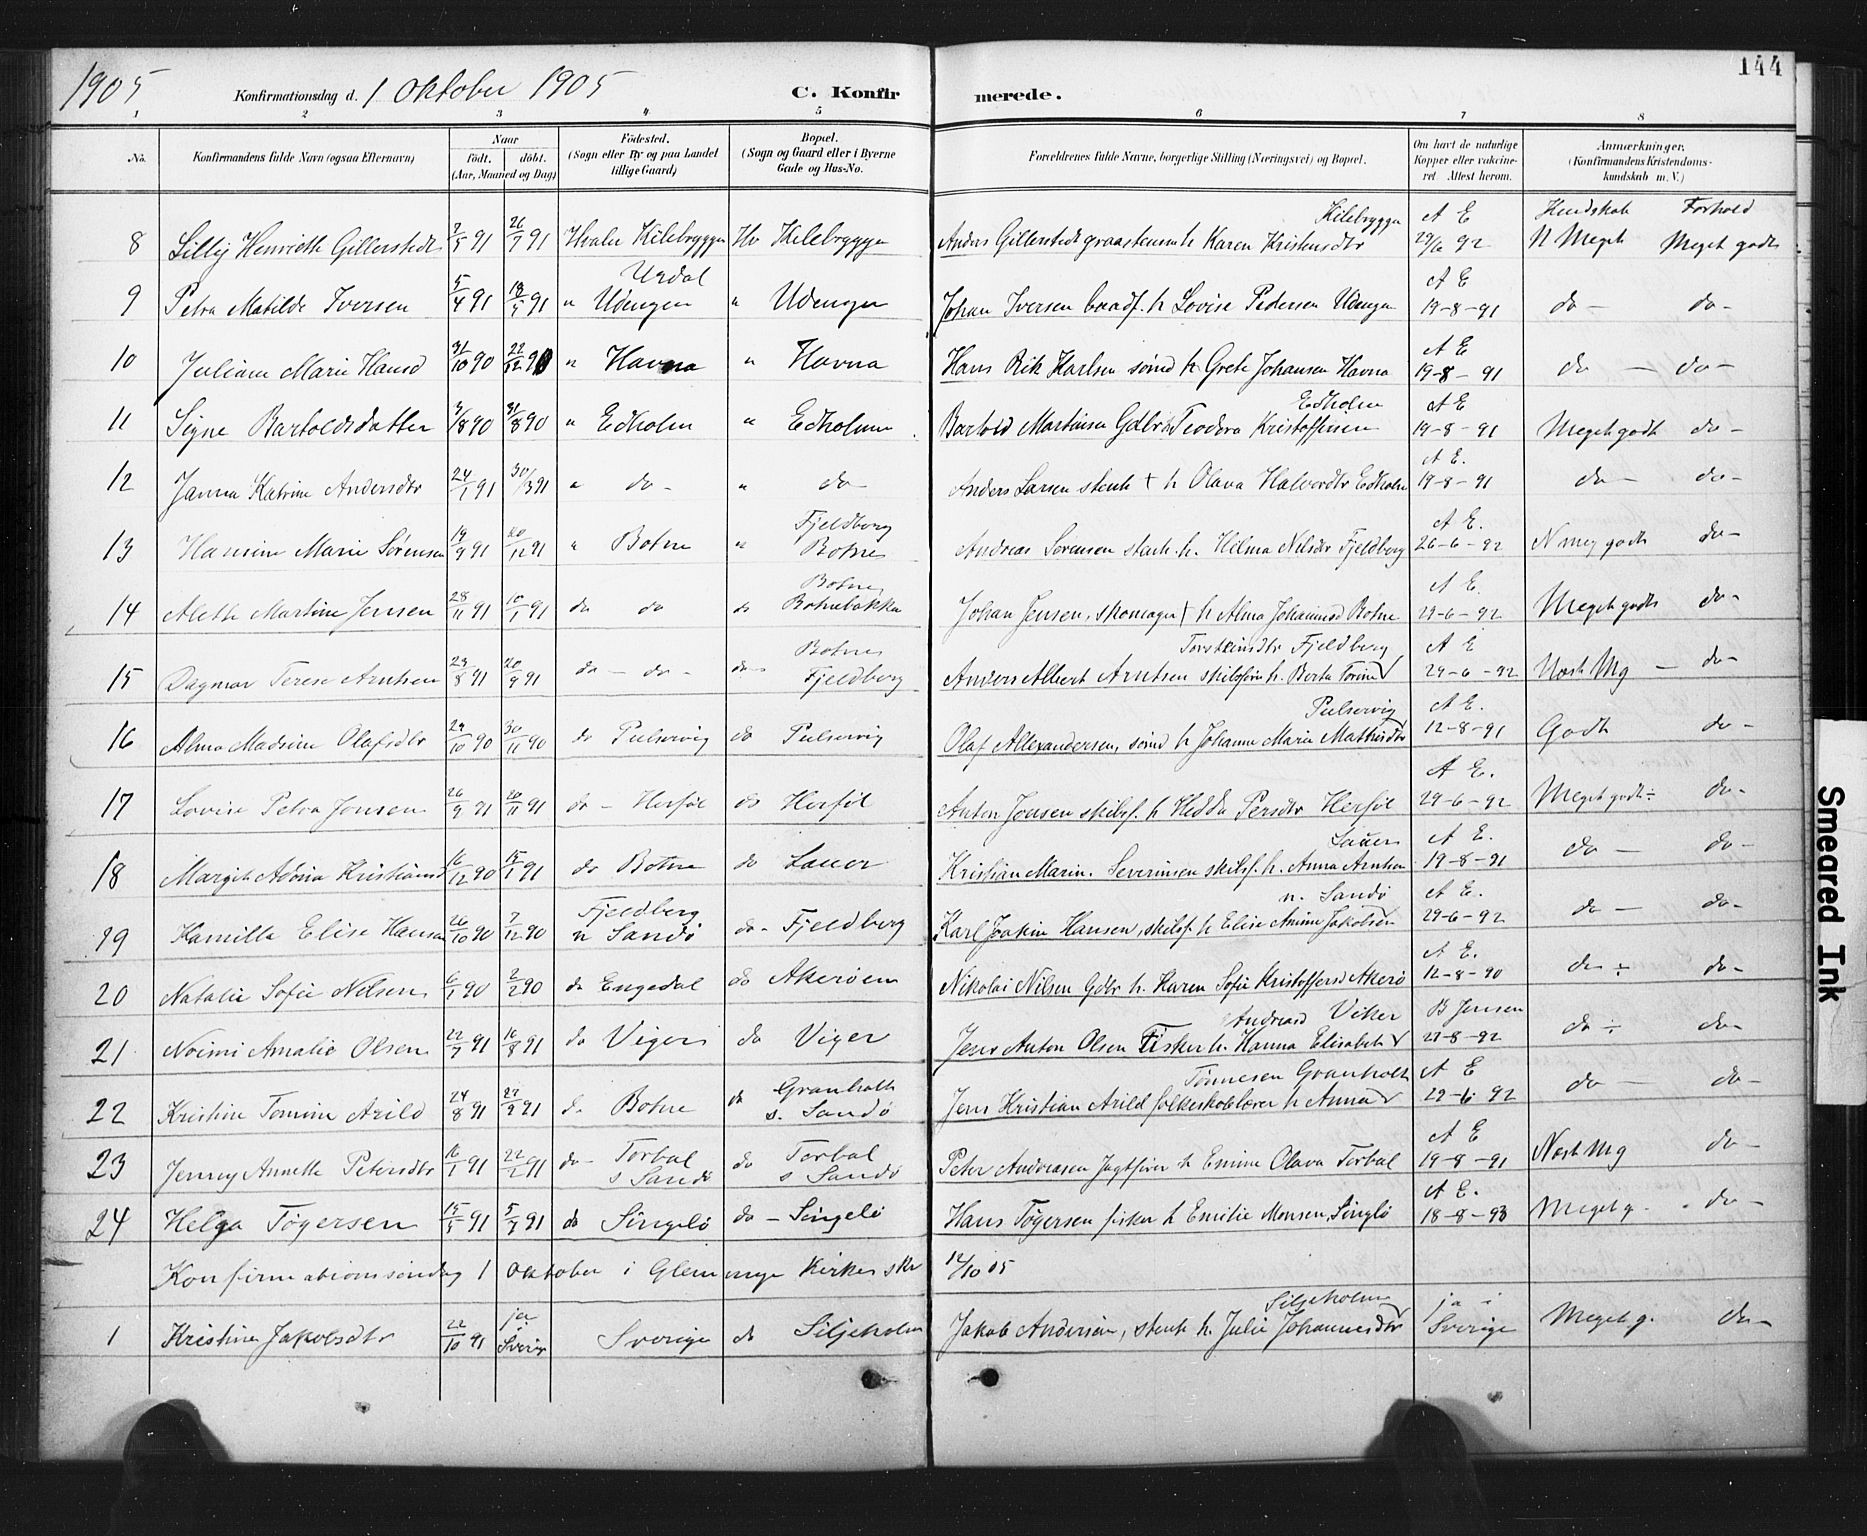 1905 Konfirmationsdag d. 1 Oktober 1905 C. Konfirmerede. 144
1 2 3 4 5 6 7 8
No. Konfirmandens fulde Navn (ogsaa Efternavn) Naar født. døbt. (Aar, Maaned og Dag) Födested. (Sogn eller By og paa Landet tillige Gaard) Bopæl. (Sogn og Gaard eller i Byerne Gade og Hus-No. Forældrenes fulde Navne, borgerlige Stilling (Næringsvei) og Bopæl. Om havt de naturlige Kopper eller vakcineret. Attest herom. Anmerkninger. (Konfirmandens Kristendomskundskab m. V.)
Kundskab Forhold
8 Lilly Henriette Gillerstedt 2/5 91 26/7 91 Hvaler Kilebryggen Hv Kilebryggen Anders Gillerstedt graastensm h Karen Kristensdtr Kilebryggen A E 29/6 92 N Meget Meget godt
9 Petra Matilde Iversen 5/4 91 18/5 91 " Urdal Udengen " Udengen Johan Iversen baadf. h Lovise Pedersen Udengen A E 19-8-91 do - do -
10 Juliane Marie Hansd 31/10 90 22/12 90 " Havna " Havna Hans Rik Karlsen sømd h Grete Johansen Havna A E 19-8-91 do - do -
11 Signe Bartoldsdatter 3/8 90 31/8 90 " Edholm " Edholmen Bartold Martinsen Gdbr h Teodora Kristoffersen Edholm A E 19-8-91 Meget godt do -
12 Janna Katrine Andersdtr 24/1 91 30/3 91 " do - " do - Anders Larsen stenh † h Olava Halvordtr Edholm A E. 19-8-91 do - do -
13 Hansine Marie Sørensen 19/9 91 20/12 91 " Botne " Fjeldberg Botne Andreas Sørensen stenh. h. Hilma Nilsdtr Fjeldberg A E. 26-6-92 N meg godt do -
14 Alette Martine Jensen 28/11 91 10/1 91 do do do Botne Botnebakken Johan Jensen, skomager † h Alma Johannesd Botne A E. 29-6-92 Meget godt do -
15 Dagmar Terese Arntsen 23/8 91 20/9 91 do - do - do Botne Fjeldberg Anders Albert Arntsen skibsfører h. Berta Torine Torsteinsdtr Fjeldberg A E 29-6-92 Næst Mg - do -
16 Alma Madsine Olafsdtr 29/10 90 30/11 90 do Pulservig do Pulservig Olaf Allexandersen, sømd h Johanne Marie Mathisdtr Pulservig A E. 12-8-91 Godt do -
17 Lovise Petra Jonsen 26/9 91 20/11 91 do - Herføl do Herføl Anton Jonsen skibsf. h Hedda Persdtr Herføl A E. 29-6-92 Meget godt ÷ do -
18 Margit Adóna Kristiansd 16/12 90 15/1 91 do Botne do Lauer Kristian Marin. Severinsen skibsf. h. Anna Arntsen Lauer A E. 19-8-91 do - do -
19 Kamilla Elise Hansen 26/10 90 7/12 90 Fjeldberg n Sandö do - Fjeldberg Karl Joakim Hansen, skibsf. h Elise Amine Jakobsen n. Sandö A E. 29-6-92 do - do -
20 Natalie Sofie Nilsen 6/1 90 2/2 90 do Engedal do Akerøen Nikolai Nilsen Gdbr h. Karen Sofie Kristoffersd Akerø A E. 12-8-90 do ÷ do -
21 Noimi Amalie Olsen 22/7 91 16/8 91 do Viger do Viger Jens Anton Olsen Fisker h. Hanna Elisabet Andreasd Viker B Jensen 27-8-92 do ÷ do -
22 Kristine Tomine Arild 24/8 91 27/9 91 do Botne do Granholt s. Sandö Jens Kristian Arild folkeskolelærer h Anna Tønnesen Granholt A E 29-6-92 do - do -
23 Jenny Annette Petersdtr 16/1 91 22/2 91 do - Torbal s Sandö do Torbal s Sandö Peter Andreasen Jagtfører h Emine Olava Torbal A E 19-8-91 Næst Mg do -
24 Helga Tøgersen 15/5 91 5/7 91 do Singelö do - Singelö Hans Tøgersen fisker h Emilie Monsen, Singlö A E. 18-8-93 Meget g. do -
Konfirmationssöndag 1 Oktober i Glemminge Kirke skr 12/10 05
1 Kristine Jakobsdtr 22/10 91 ja i Sverige Sverige do Siljeholm Jakob Andersen, stenh h. Julie Johannesdtr Siljeholmen ja i Sverige Meget g. do -
Smeared Ink